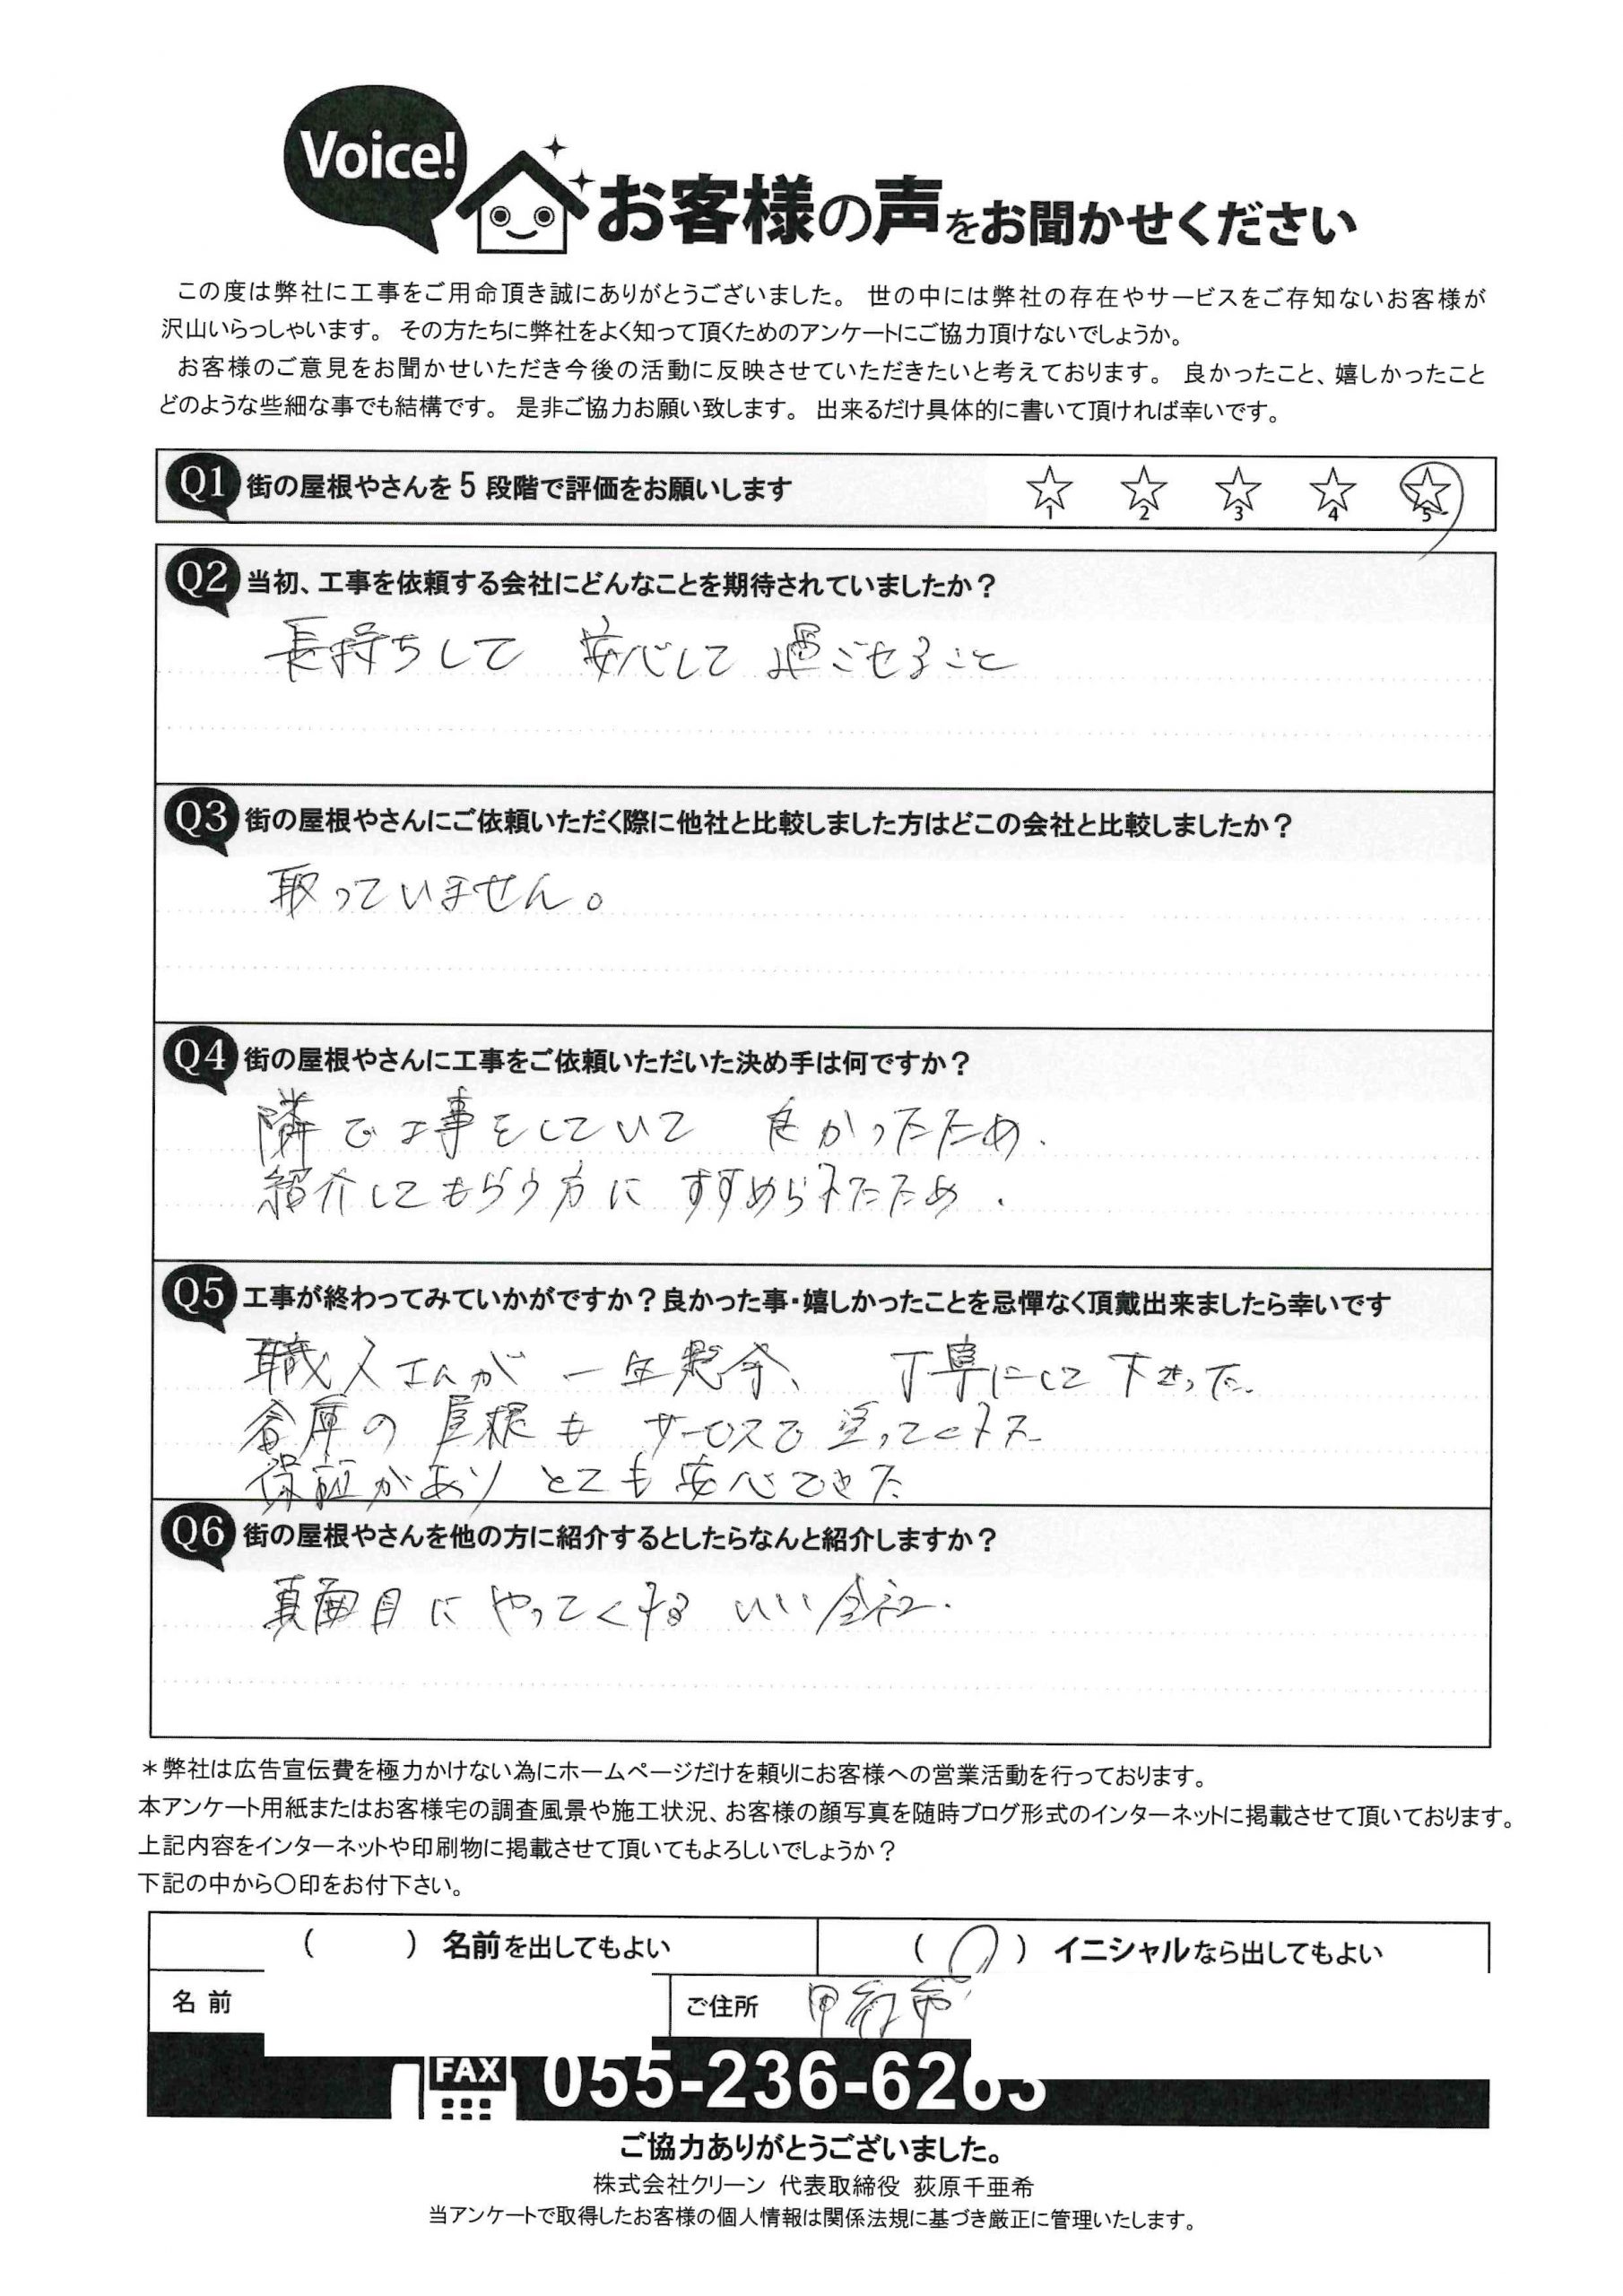 Voice!
お客様の声をお聞かせください
この度は弊社に工事をご用命頂き誠にありがとうございました。 世の中には弊社の存在やサービスをご存知ないお客様が
沢山いらっしゃいます。 その方たちに弊社をよく知って頂くためのアンケートにご協力頂けないでしょうか。
お客様のご意見をお聞かせいただき今後の活動に反映させていただきたいと考えております。 良かったこと、嬉しかったこと
どのような些細な事でも結構です。 是非ご協力お願い致します。 出来るだけ具体的に書いて頂ければ幸いです。
Q1 街の屋根やさんを5段階で評価をお願いします ☆1 ☆2 ☆3 ☆4 ☆5
Q2 当初、工事を依頼する会社にどんなことを期待されていましたか？
長持ちして 安心して 過ごせること
Q3 街の屋根やさんにご依頼いただく際に他社と比較しました方はどこの会社と比較しましたか？
取っていません。
Q4 街の屋根やさんに工事をご依頼いただいた決め手は何ですか？
隣で工事をしていて 良かったため.
紹介してもらう方に すすめられたため.
Q5 工事が終わってみていかがですか？良かった事・嬉しかったことを忌憚なく頂戴出来ましたら幸いです
職人さんが 一生懸命、 丁寧にして下さった.
倉庫の 屋根も サービスで 塗ってくれた
保証があり とても 安心できた
Q6 街の屋根やさんを他の方に紹介するとしたらなんと紹介しますか？
真面目に やってくれる いい会社.
＊弊社は広告宣伝費を極力かけない為にホームページだけを頼りにお客様への営業活動を行っております。
本アンケート用紙またはお客様宅の調査風景や施工状況、お客様の顔写真を随時ブログ形式のインターネットに掲載させて頂いております。
上記内容をインターネットや印刷物に掲載させて頂いてもよろしいでしょうか？
下記の中から〇印をお付下さい。
（ ）名前を出してもよい （〇）イニシャルなら出してもよい
名前 ご住所 甲府市
FAX 055-236-6263
ご協力ありがとうございました。
株式会社クリーン 代表取締役 荻原千亜希
当アンケートで取得したお客様の個人情報は関係法規に基づき厳正に管理いたします。